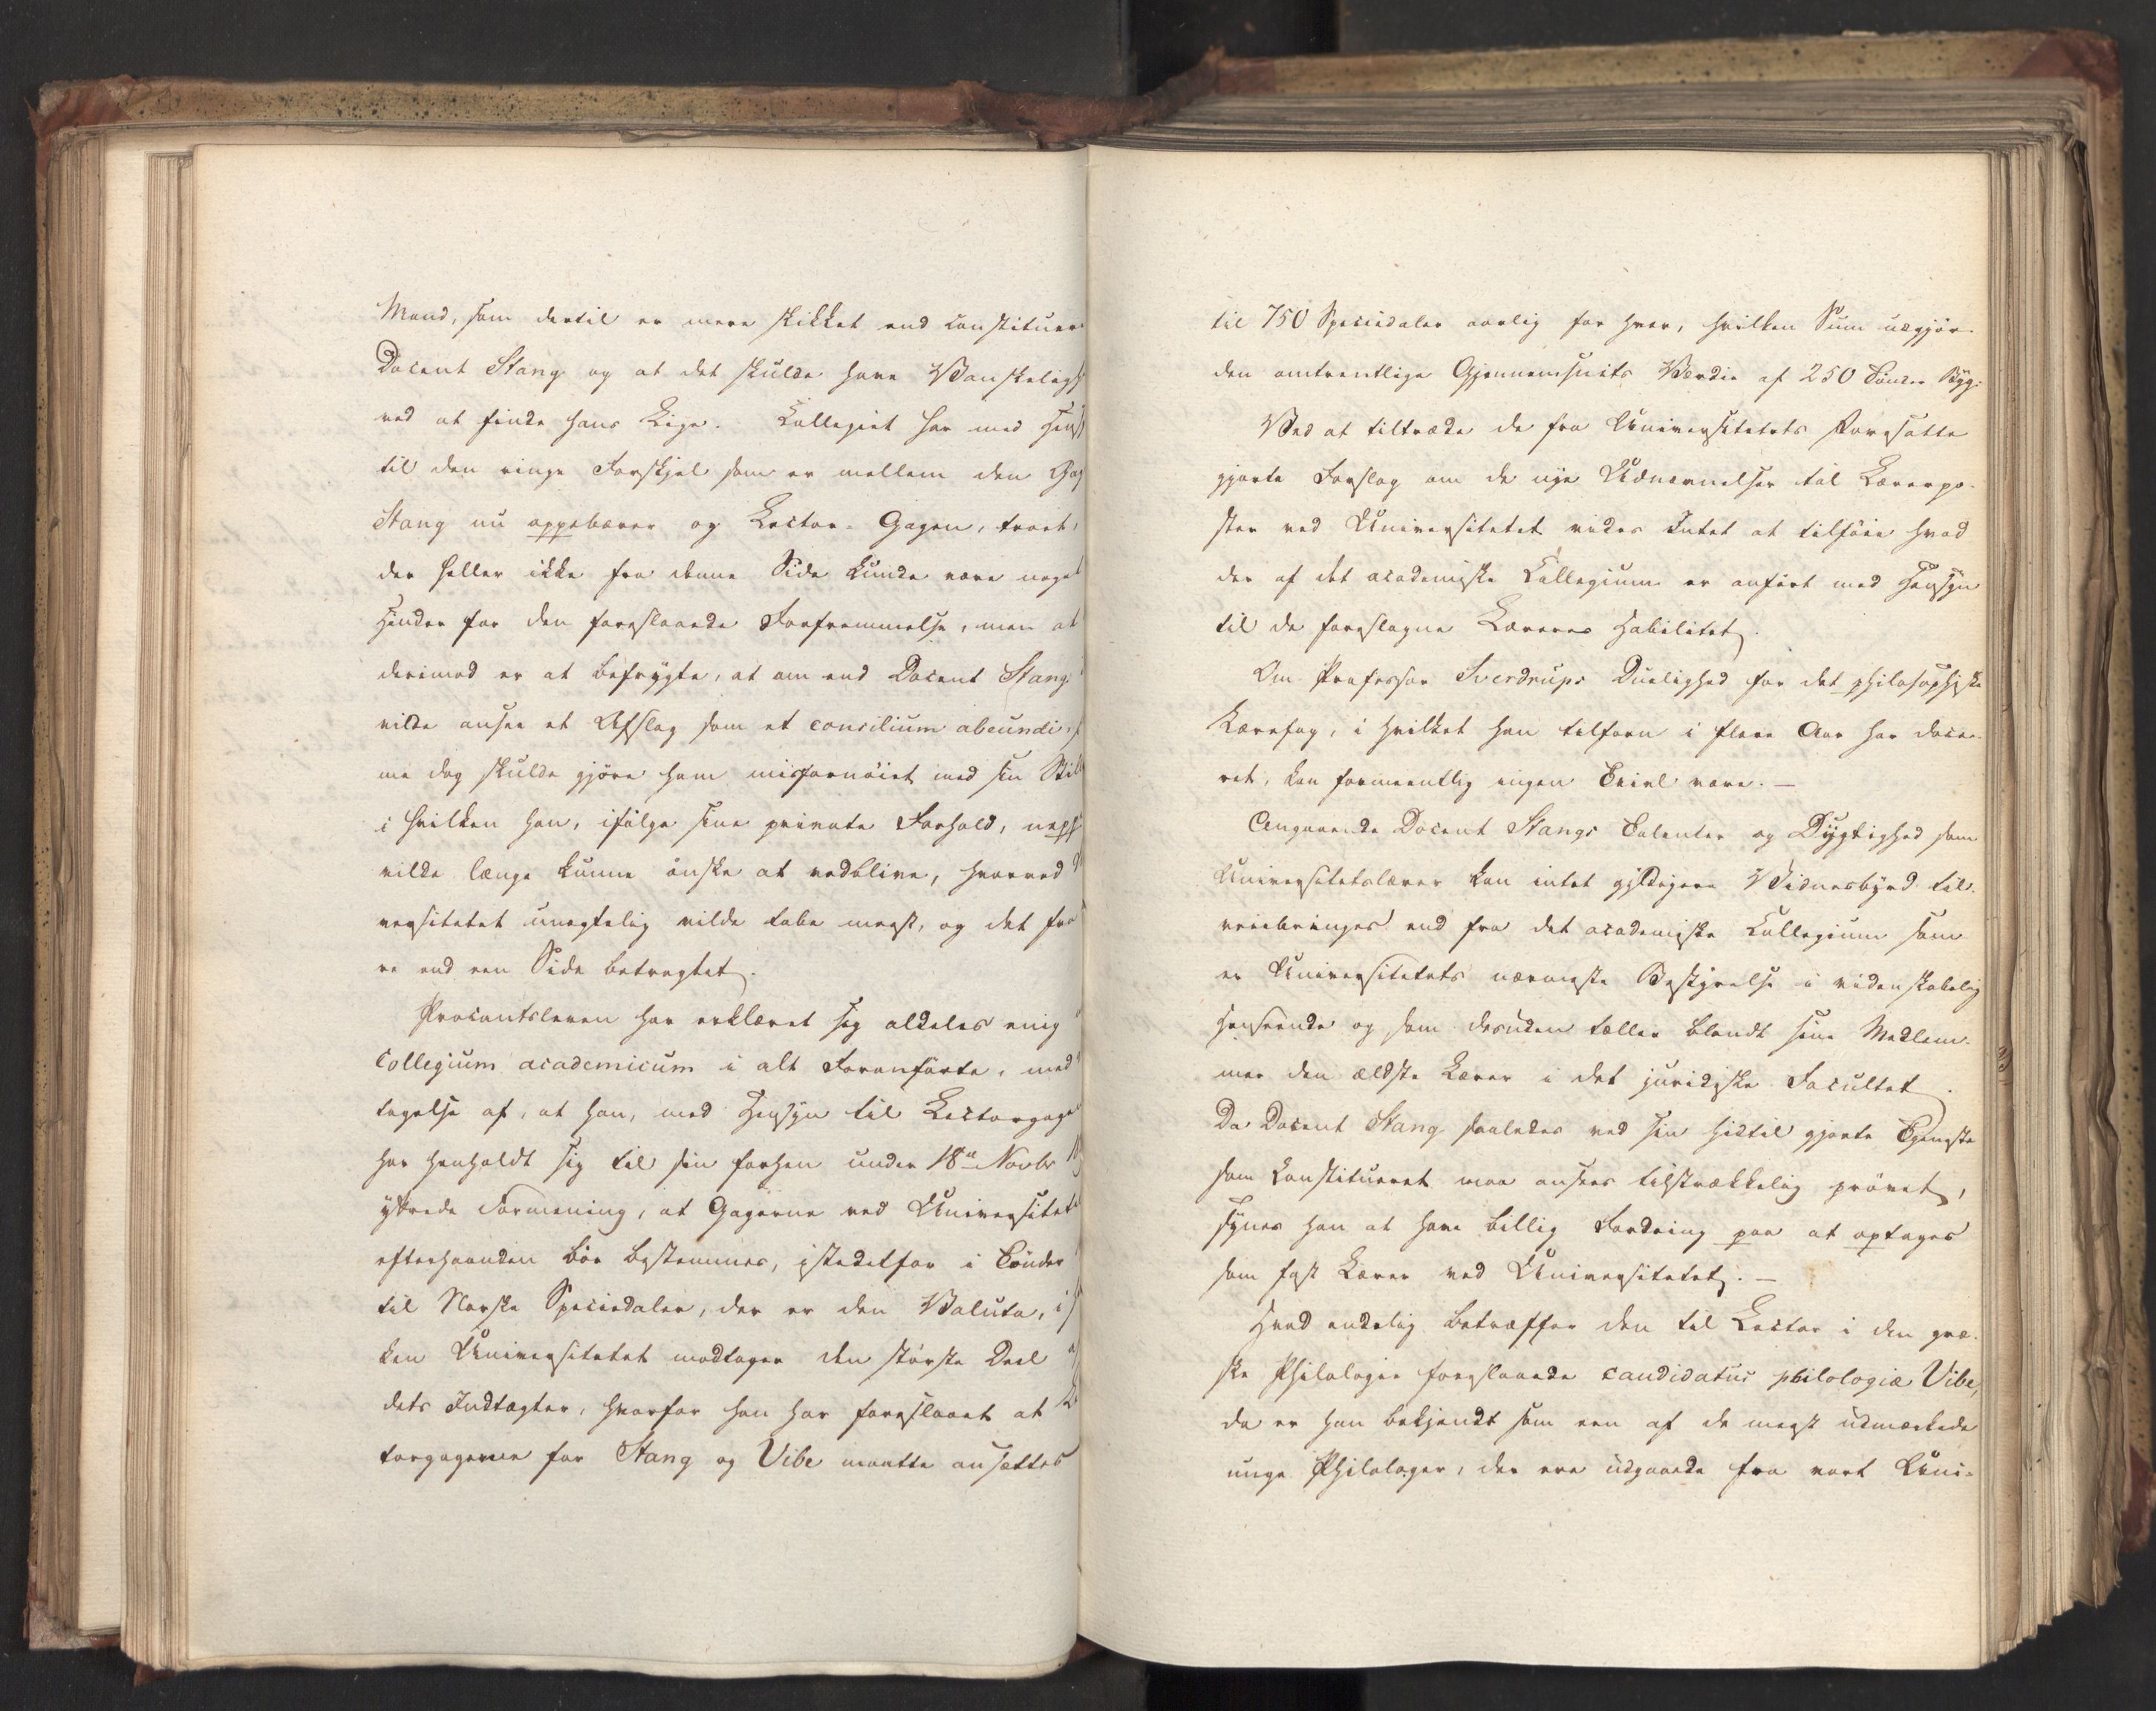 Mand, som dertil er mere skikket end constituer
Docent Stang og at det skulde have Vanskeligh
ved at finde hans Lige. Collegiet har med Hens
til den ringe Forskjel som er mellem den Gag
Stang nu oppebærer og Lector-Gagen, troet,
der heller ikke fra denne Side kunde være noget
Hinder for den foreslaaede Forfremmelse, men at
derimod er at befrygte, at om end Docent Stang
vilde ansee et Afslag som et concilium abeundi,
me dog skulde gjøre ham misfornøiet med sin Still
i hvilken han, ifølge sine private Forhold, neppe
vilde længe kunne ønske at vedblive, hvorved
versitetet unegtelig vilde tabe meget, og det fra
re end een Side betragtet.
Procantsleren har erklæret sig aldeles enig
Collegium academicum i alt Foranførte, med
tagelse af, at han, med Hensyn til Lectorgage
har henholdt sig til sin forhen under 18de Novbr
yttrede Formening, at Gagerne ved Universitet
efterhaanden bør bestemmes, istedetfor i Tønder
til Norske Speciedaler, der er den Valuta, i
ken Universitetet modtager den største Deel
dets Indtægter, hvorfor han har foreslaaet at
torgagerne for Stang og Vibe maatte ansættes
til 750 Speciedaler aarlig for hver, hvilken Sum udgjør
den omtrentlige Gjennemsnits Værdie af 250 Tønder Byg.
Ved at tiltræde de fra Universitetets Foresatte
gjorte Forslag om de nye Udnævnelser til Lærerpo-
ster ved Universitetet vides Intet at tilføie hvad
der af det academiske Collegium er anført med Hensyn
til de foreslagne Læreres Habilitet.
Om Professor Sverdrups Duelighed for det philosophiske
Lærefag, i hvilket han tilforn i flere Aar har doce-
ret, kan formeentlig ingen Tvivl være. —
Angaaende Docent Stangs Talenter og Dygtighed som
Universitetslærer kan intet gyldigere Vidnesbyrd til-
veiebringes end fra det academiske Collegium som
er Universitetets nærmeste Bestyrelse i videnskabelig
Henseende og som desuden tæller blandt sine Medlem-
mer den ældste Lærer i det juridiske Facultet.
Da Docent Stang saaledes ved sin hidtil gjorte Tjeneste
som Constitueret maa ansees tilstrækkelig prøvet,
synes han at have billig Fordring paa at optages
som fast Lærer ved Universitetet. —
Hvad endelig betræffer den til Lector i den græ-
ske Philologie foreslaaede candidatus philologiæ Vibe,
da er han bekjendt som een af de meest udmærkede
unge Philologer, der ere udgaaede fra vort Uni-